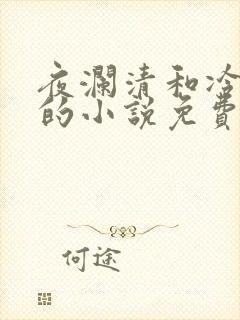 夜瀾清和冷
的小說免費
何途